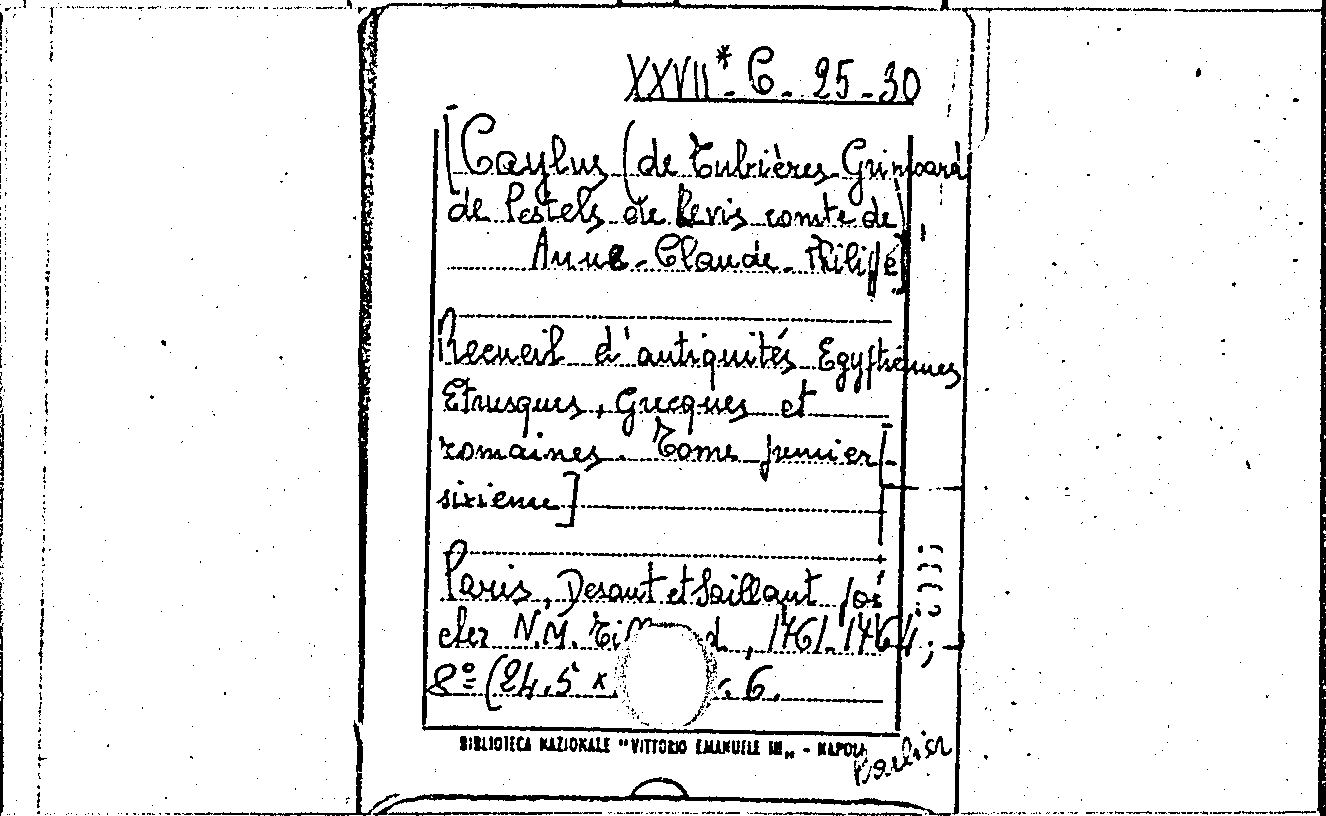 XXVII* C. 25-30
[Caylus (de Tubières Grimoard
de Pestels de Levis comte de)
Anne-Claude-Philippe]
Recueil d'antiquités Egyptiennes
Etrusques, Grecques et
romaines. Tome premier [-
sixieme]
Paris, Desaint et Saillant,
chez N.M. , 1761-1764;
8º (24,5 x . 6.
BIBLIOTECA NAZIONALE "VITTORIO EMANUELE III„ - NAPOLI